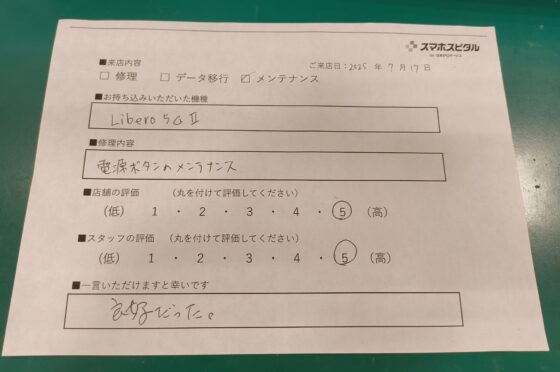 スマホスピタル
■来店内容
ご来店日：2025 年 7 月 17 日
□ 修理 □ データ移行 ☑ メンテナンス
■お持ち込みいただいた機種
Libero 5G II
■修理内容
電源ボタンのメンテナンス
■店舗の評価 （丸を付けて評価してください）
（低） 1 ・ 2 ・ 3 ・ 4 ・ 5 （高）
■スタッフの評価 （丸を付けて評価してください）
（低） 1 ・ 2 ・ 3 ・ 4 ・ 5 （高）
■一言いただけますと幸いです
良好だった。